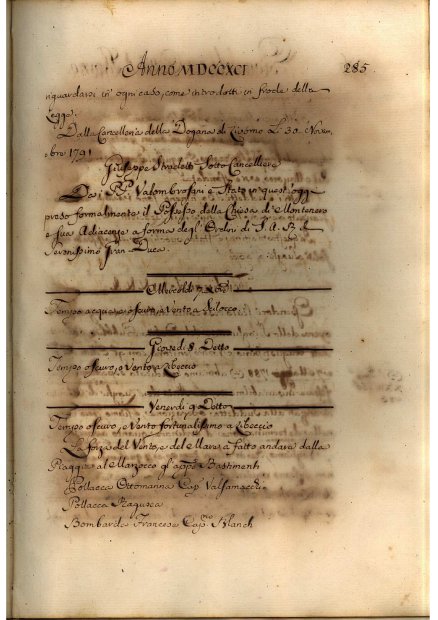 Anno MDCCXCI 285
riguardarsi in ogni caso, come introdotti in frode della
Legge.
Dalla Cancelleria della Dogana di Livorno Li 30. Novem,
bre 1791
Giuseppe Sottocancelliere
Da P.P. Valombrosani è Stato in quest'oggi
preso formalmente il Possesso della Chiesa di Montenero
e sua Adiacenze a forma degl'Ordini di S. A. R. il
Serenissimo Gran Duca.
Mercoldì 7
Tempo acquoso, oscuro, e Vento a Scilocco
Giovedì 8 Detto
Tempo oscuro, e Vento a Libeccio
Venerdì 9 Detto
Tempo oscuro, e Vento fortunalissimo a Libeccio
La forza del Vento, e del Mare, à fatto andare dalla
Piaggia al Marzocco gl'appi Bastimenti
Pollacca Ottomanna Cap. Valsamachi
Pollacca Ragusea
Bombarda Francese Capno Blanch